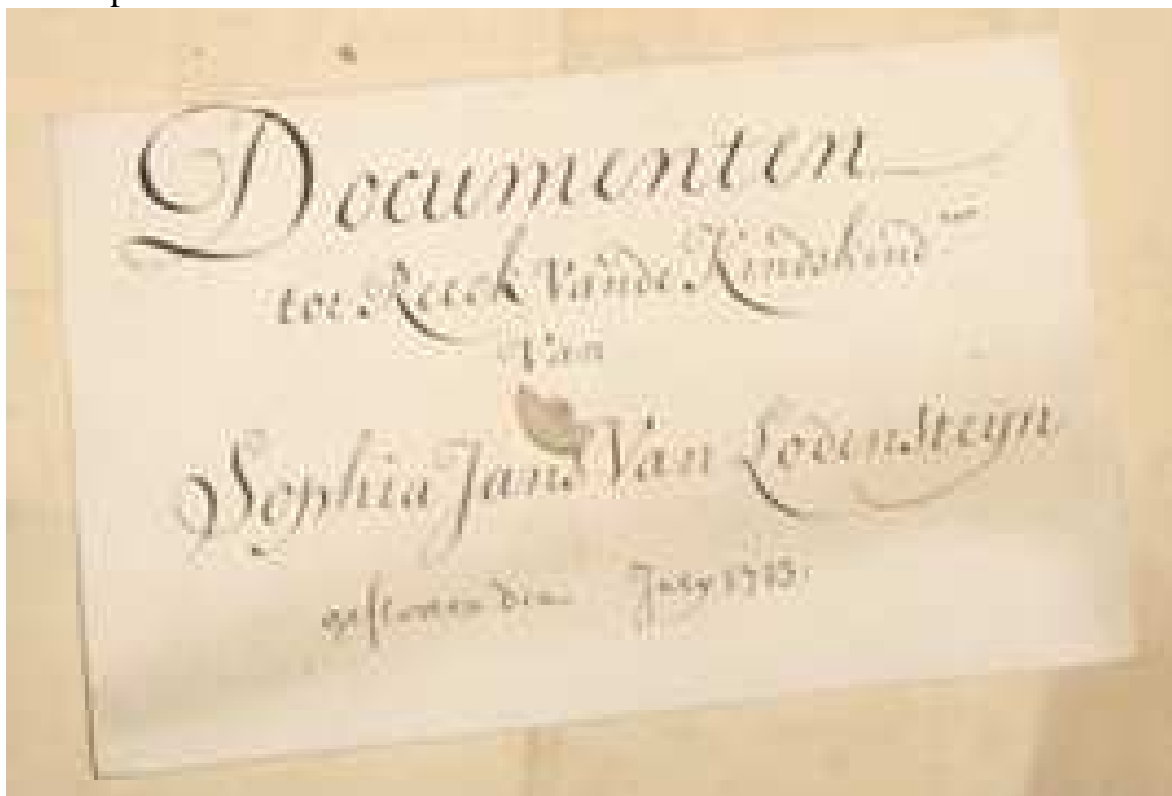 Documenten
toe Reeck Vande Kindskind
Van
Sophia Jans Van Lodensteyn
gestorven den July